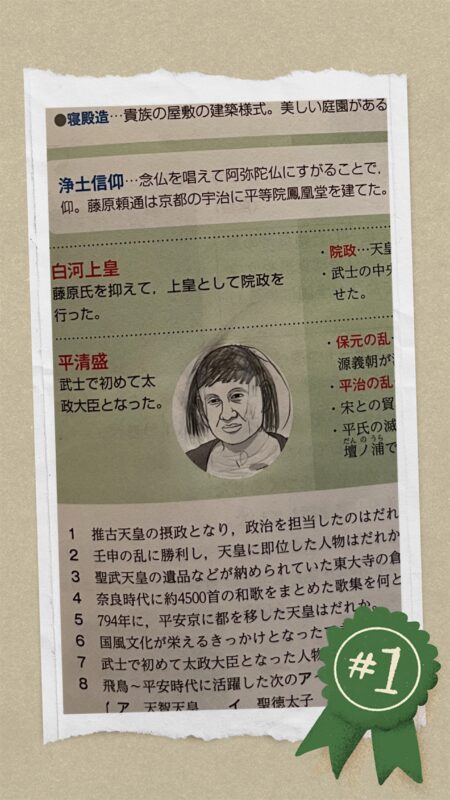 ●寝殿造…貴族の屋敷の建築様式。美しい庭園がある
浄土信仰…念仏を唱えて阿弥陀仏にすがることで,
仰。藤原頼通は京都の宇治に平等院鳳凰堂を建てた。
白河上皇
藤原氏を抑えて，上皇として院政を
行った。
・院政…天皇
・武士の中央
せた。
平清盛
武士で初めて太
政大臣となった。
・保元の乱
源義朝が
・平治の乱
・宋との貿
・平氏の滅
だんのうら
壇ノ浦で
1 推古天皇の摂政となり，政治を担当したのはだれ
2 壬申の乱に勝利し，天皇に即位した人物はだれか
3 聖武天皇の遺品などが納められていた東大寺の倉
4 奈良時代に約4500首の和歌をまとめた歌集を何と
5 794年に，平安京に都を移した天皇はだれか。
6 国風文化が栄えるきっかけとなった
7 武士で初めて太政大臣となった人物
8 飛鳥～平安時代に活躍した次のア
ア 天智天皇 イ 聖徳太子
#1